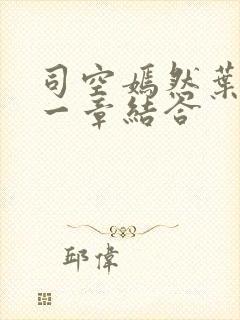 司空嫣然葉
一章結答
邱偉